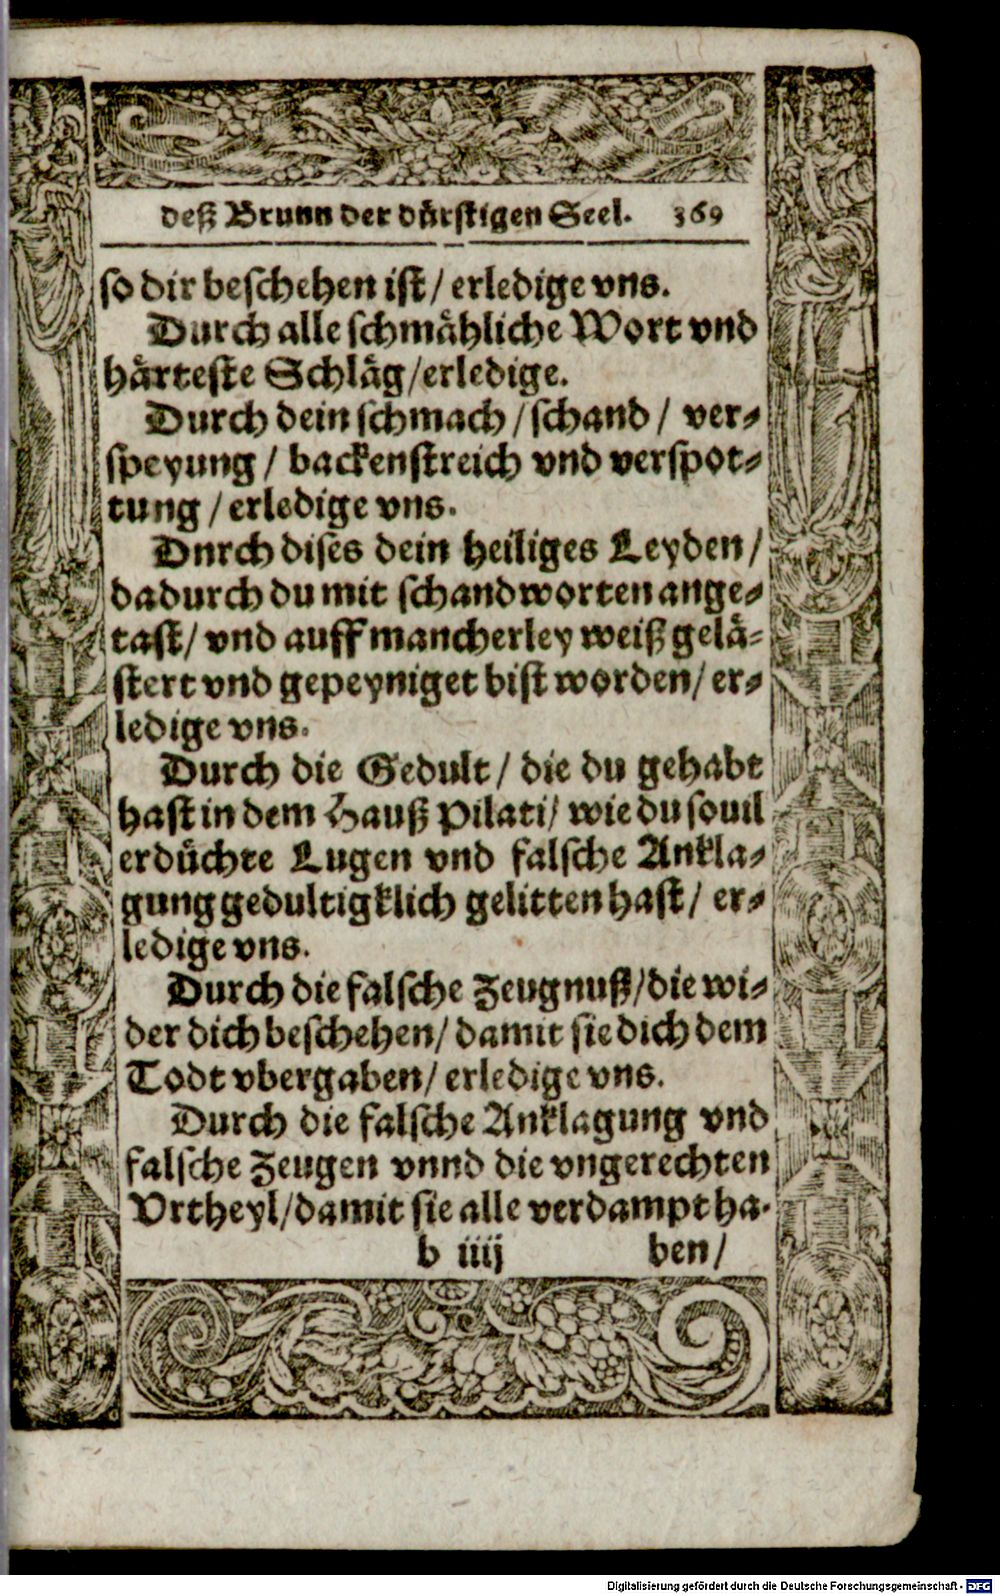 deß Brunn der dürstigen Seel. 369
so dir beschehen ist / erledige vns.
Durch alle schmähliche Wort vnd
härteste Schläg / erledige.
Durch dein schmach / schand / ver-
speyung / backenstreich vnd verspot-
tung / erledige vns.
Dnrch dises dein heiliges Leyden /
dadurch du mit schandworten ange-
tast / vnd auff mancherley weiß gelä-
stert vnd gepeyniget bist worden / er-
ledige vns.
Durch die Gedult / die du gehabt
hast in dem Hauß Pilati / wie du souil
erdüchte Lugen vnd falsche Ankla-
gung gedultigklich gelitten hast / er-
ledige vns.
Durch die falsche Zeugnuß / die wi-
der dich beschehen / damit sie dich dem
Todt vbergaben / erledige vns.
Durch die falsche Anklagung vnd
falsche Zeugen vnnd die vngerechten
Vrtheyl / damit sie alle verdampt ha-
b iiij ben /
Digitalisierung gefördert durch die Deutsche Forschungsgemeinschaft - DFG